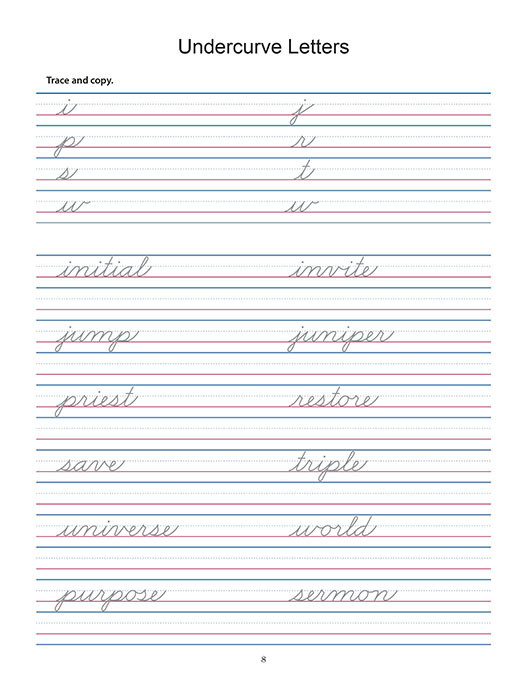 Undercurve Letters
Trace and copy.
i j
p r
s t
w w
initial invite
jump juniper
priest restore
save triple
universe world
purpose sermon
8